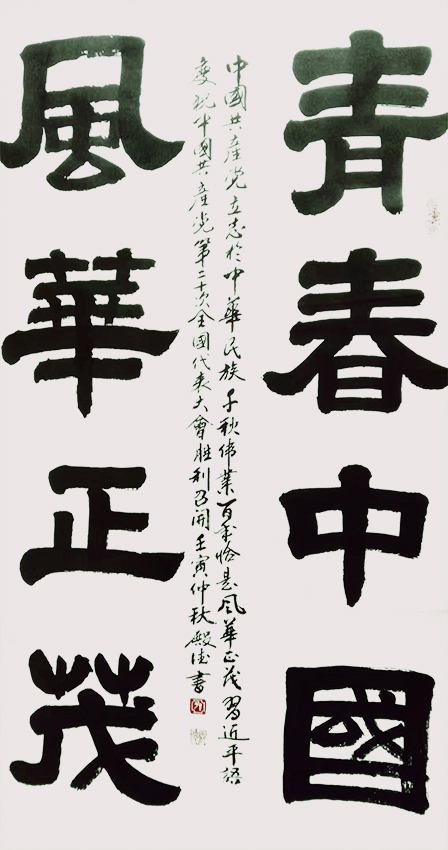 青春中國
風華正茂
中國共產党立志於中華民族千秋偉業百年恰是風華正茂習近平語
慶祝中國共產党第二十次全國代表大會胜利召開壬寅仲秋殿法書